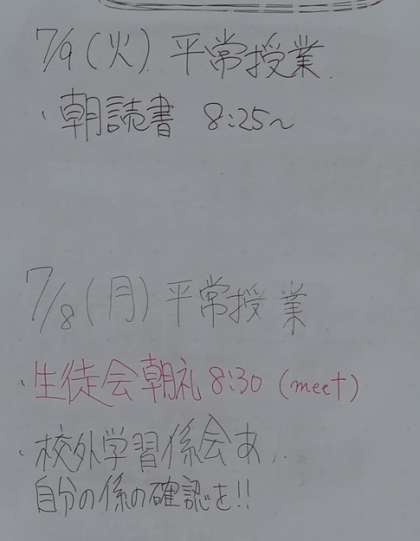 7/9(火) 平常授業
・朝読書 8:25~
7/8(月) 平常授業
・生徒会朝礼 8:30 (meet)
・校外学習係会あ..
自分の係の確認を!!